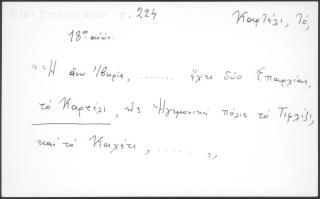 σ. 224
Καρτέλι, Τό,
18ος αἰών.
"Ἡ ἄνω Ἰβηρία, ....... ἔχει δύο Ἐπαρχίας,
τό Καρτέλι, τῆς Ἡγεμονική πόλις τό Τιφλίζι,
καί τό Καχέτι, ...... ,,